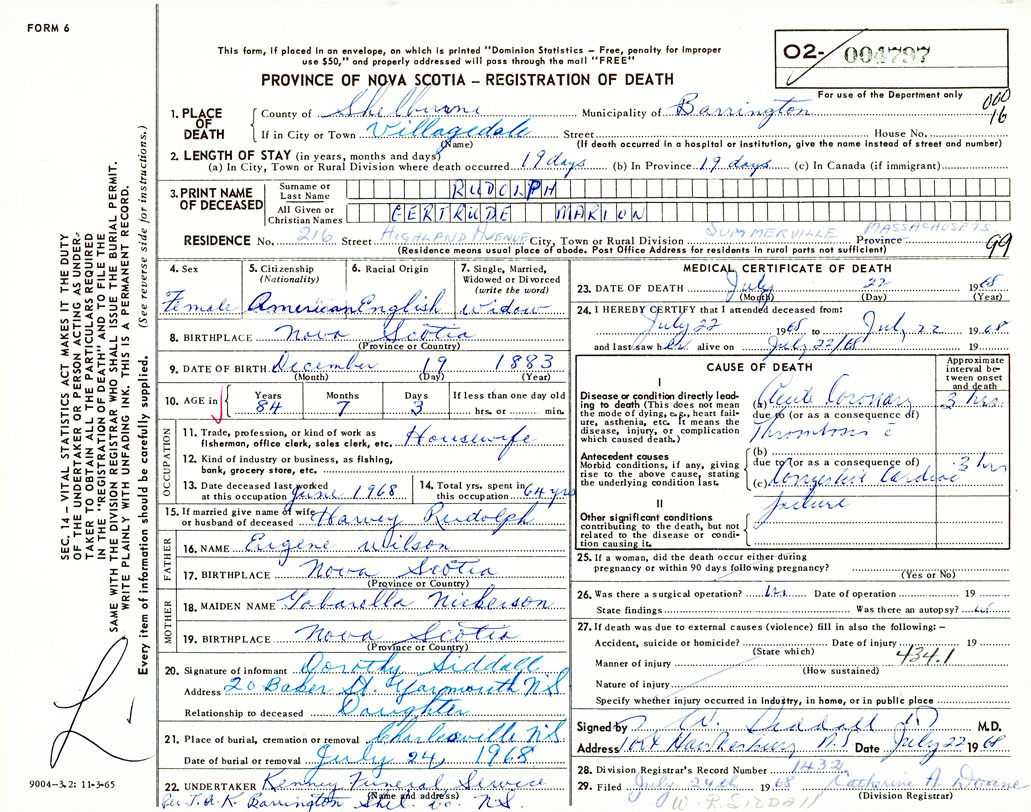 FORM 6
This form, if placed in an envelope, on which is printed "Dominion Statistics – Free, penalty for improper
use $50," and properly addressed will pass through the mail "FREE"
O2- 004797
PROVINCE OF NOVA SCOTIA – REGISTRATION OF DEATH
For use of the Department only
000
16
1. PLACE OF DEATH
County of Shelburne Municipality of Barrington
If in City or Town Villagedale Street House No.
(Name) (If death occurred in a hospital or institution, give the name instead of street and number)
2. LENGTH OF STAY (in years, months and days)
(a) In City, Town or Rural Division where death occurred 19 days (b) In Province 19 days (c) In Canada (if immigrant)
3. PRINT NAME OF DECEASED
Surname or Last Name RUDOLPH
All Given or Christian Names GERTRUDE MARION
RESIDENCE No. 216 Street HIGHLAND AVENUE City, Town or Rural Division SUMMERVILLE Province MASSACHUSETS
(Residence means usual place of abode. Post Office Address for residents in rural parts not sufficient)
99
4. Sex 5. Citizenship (Nationality) 6. Racial Origin 7. Single, Married, Widowed or Divorced (write the word)
Female American English Widow
8. BIRTHPLACE Nova Scotia
(Province or Country)
9. DATE OF BIRTH December 19 1883
(Month) (Day) (Year)
10. AGE in Years Months Days If less than one day old
84 7 3 hrs. or min.
OCCUPATION
11. Trade, profession, or kind of work as
fisherman, office clerk, sales clerk, etc. Housewife
12. Kind of industry or business, as fishing,
bank, grocery store, etc.
13. Date deceased last worked
at this occupation June 1968
14. Total yrs. spent in
this occupation 64 yrs
15. If married give name of wife
or husband of deceased Harvey Rudolph
FATHER
16. NAME Eugene Wilson
17. BIRTHPLACE Nova Scotia
(Province or Country)
MOTHER
18. MAIDEN NAME Nickerson
19. BIRTHPLACE Nova Scotia
(Province or Country)
20. Signature of informant Dorothy Siddall
Address 20 Baker St. Yarmouth N.S
Relationship to deceased Daughter
21. Place of burial, cremation or removal Charlesville N.S.
Date of burial or removal July 24, 1968
22. UNDERTAKER Kenny Funeral Service
(Name and address)
Barrington Shel. Co. N.S.
MEDICAL CERTIFICATE OF DEATH
23. DATE OF DEATH July 22 1968
(Month) (Day) (Year)
24. I HEREBY CERTIFY that I attended deceased from:
July 22 1968 to July 22 1968
and last saw her alive on July 22/68 19
CAUSE OF DEATH
Approximate interval between onset and death
I
Disease or condition directly leading to death (This does not mean the mode of dying, e.g., heart failure, asthenia, etc. It means the disease, injury, or complication which caused death.)
(a) Acute Coronary 3 hrs.
due to (or as a consequence of)
Thrombosis c̄
Antecedent causes
Morbid conditions, if any, giving rise to the above cause, stating the underlying condition last.
(b)
due to (or as a consequence of) 3 hrs
(c) Congestive Cardiac
failure
II
Other significant conditions
contributing to the death, but not related to the disease or condition causing it.
25. If a woman, did the death occur either during
pregnancy or within 90 days following pregnancy?
(Yes or No)
26. Was there a surgical operation? Date of operation 19
State findings Was there an autopsy?
27. If death was due to external causes (violence) fill in also the following: –
Accident, suicide or homicide? Date of injury 19
(State which) 434.1
Manner of injury
(How sustained)
Nature of injury
Specify whether injury occurred in Industry, in home, or in public place
Signed by W. Siddall M.D.
Address Hawkesbury N.S Date July 22 1968
28. Division Registrar's Record Number 1432
29. Filed July 24th 1968 Catherine A Doane
(Division Registrar)
W. R. SIDDALL
SEC. 14 – VITAL STATISTICS ACT MAKES IT THE DUTY
OF THE UNDERTAKER OR PERSON ACTING AS UNDER-
TAKER TO OBTAIN ALL THE PARTICULARS REQUIRED
IN THE "REGISTRATION OF DEATH" AND TO FILE THE
SAME WITH THE DIVISION REGISTRAR WHO SHALL ISSUE THE BURIAL PERMIT.
WRITE PLAINLY WITH UNFADING INK. THIS IS A PERMANENT RECORD.
Every item of information should be carefully supplied. (See reverse side for instructions.)
9004–3.2: 11-3-65